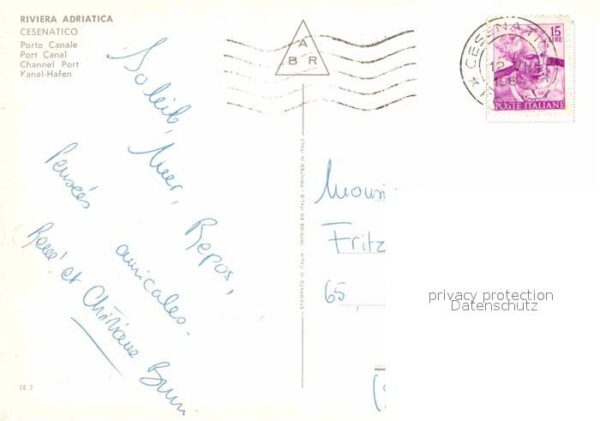 RIVIERA ADRIATICA
CESENATICO
Porto Canale
Port Canal
Channel Port
Kanal-Hafen
Soleil, Mer, Repos,
Pensées amicales.
René et Christiane
A
B R
CESENATICO
12
15
LIRE
POSTE ITALIANE
Fritz
65,
privacy protection
Datenschutz
CE 7